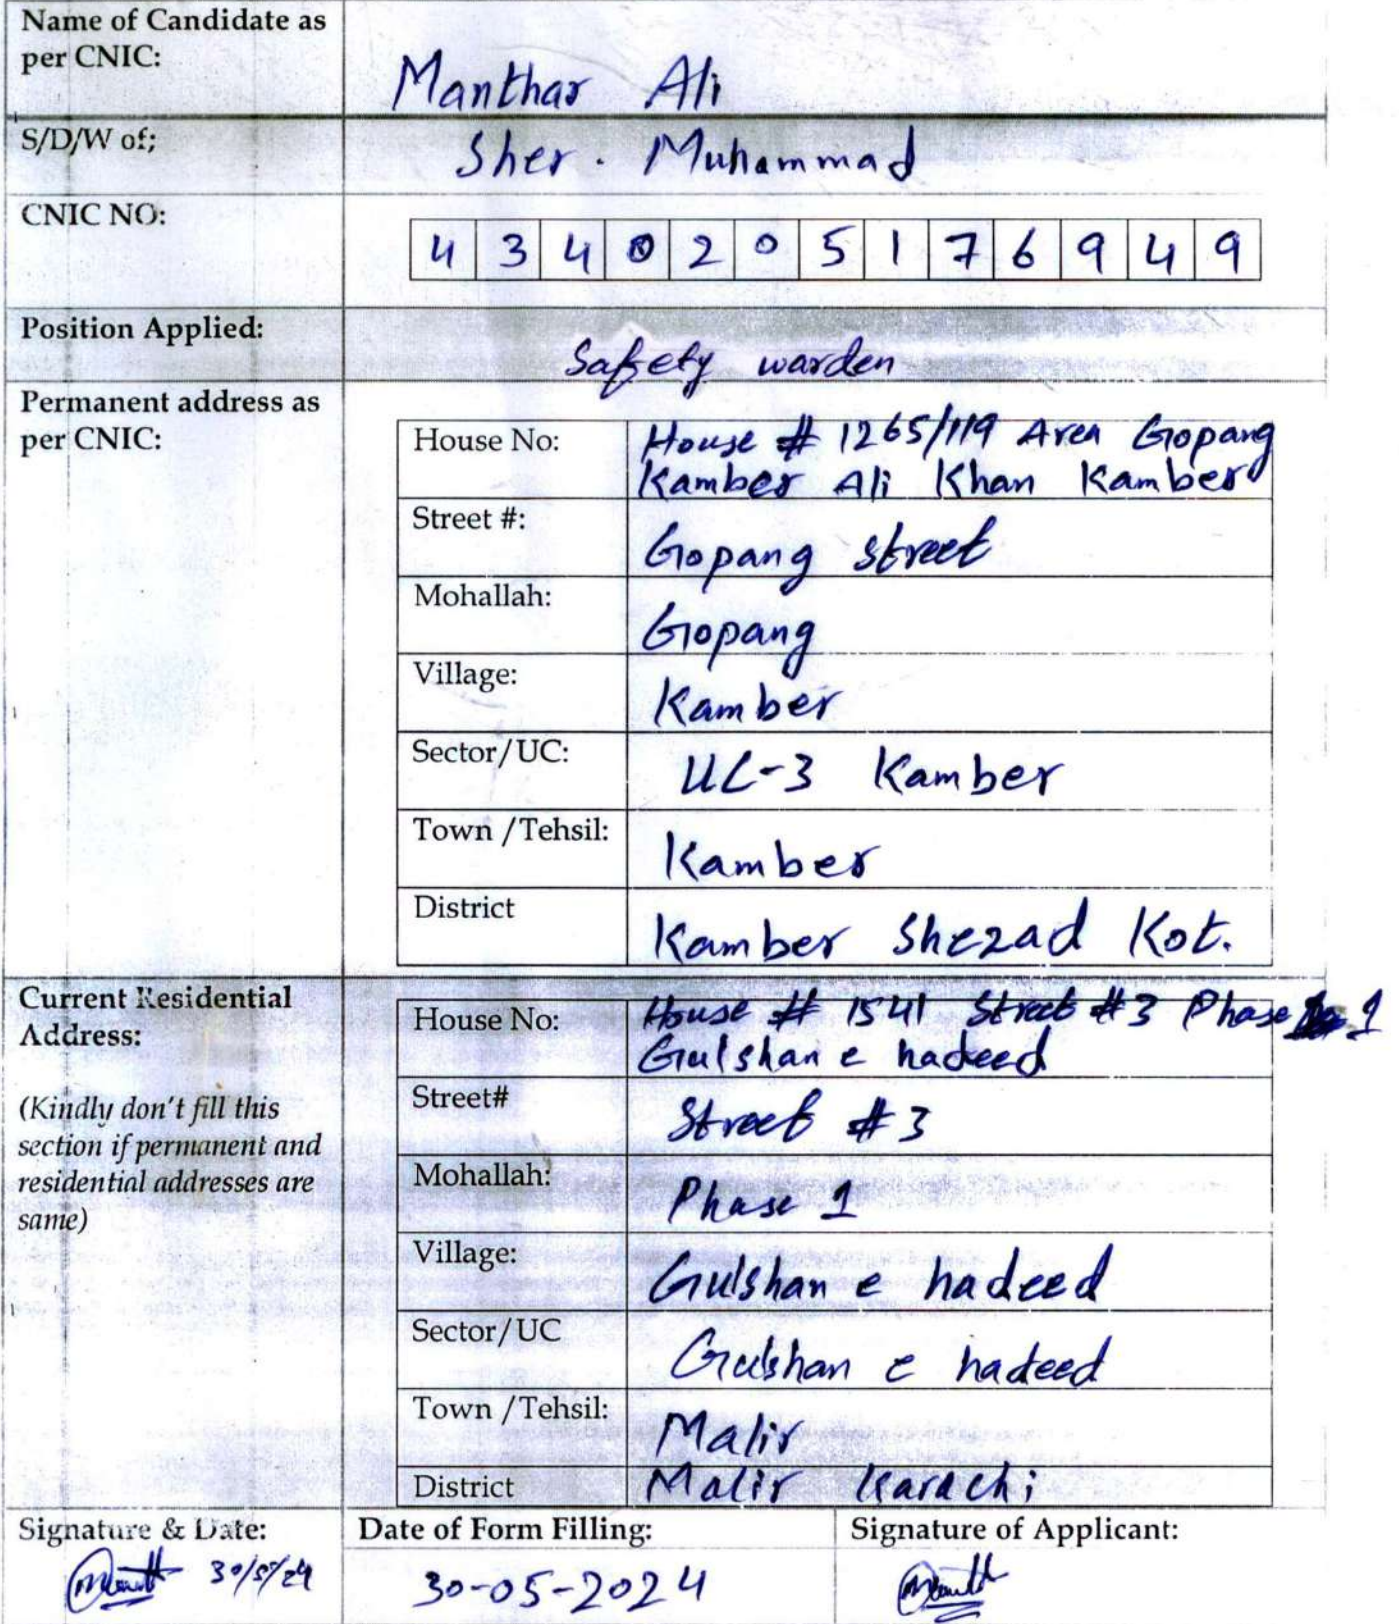 Name of Candidate as
per CNIC:
Manthar Ali
S/D/W of;
Sher. Muhammad
CNIC NO:
4 3 4 0 2 0 5 1 7 6 9 4 9
Position Applied:
Safety warden
Permanent address as
per CNIC:
House No:
House # 1265/119 Area Gopang
Kamber Ali Khan Kamber
Street #:
Gopang street
Mohallah:
Gopang
Village:
Kamber
Sector/UC:
UC-3 Kamber
Town /Tehsil:
Kamber
District
Kamber Shezad Kot.
Current Residential
Address:
(Kindly don't fill this
section if permanent and
residential addresses are
same)
House No:
House # 1541 Street #3 Phase 1
Gulshan e hadeed
Street#
Street #3
Mohallah:
Phase 1
Village:
Gulshan e hadeed
Sector/UC
Gulshan e hadeed
Town /Tehsil:
Malir
District
Malir Karachi
Signature & Date:
30/5/24
Date of Form Filling:
30-05-2024
Signature of Applicant: